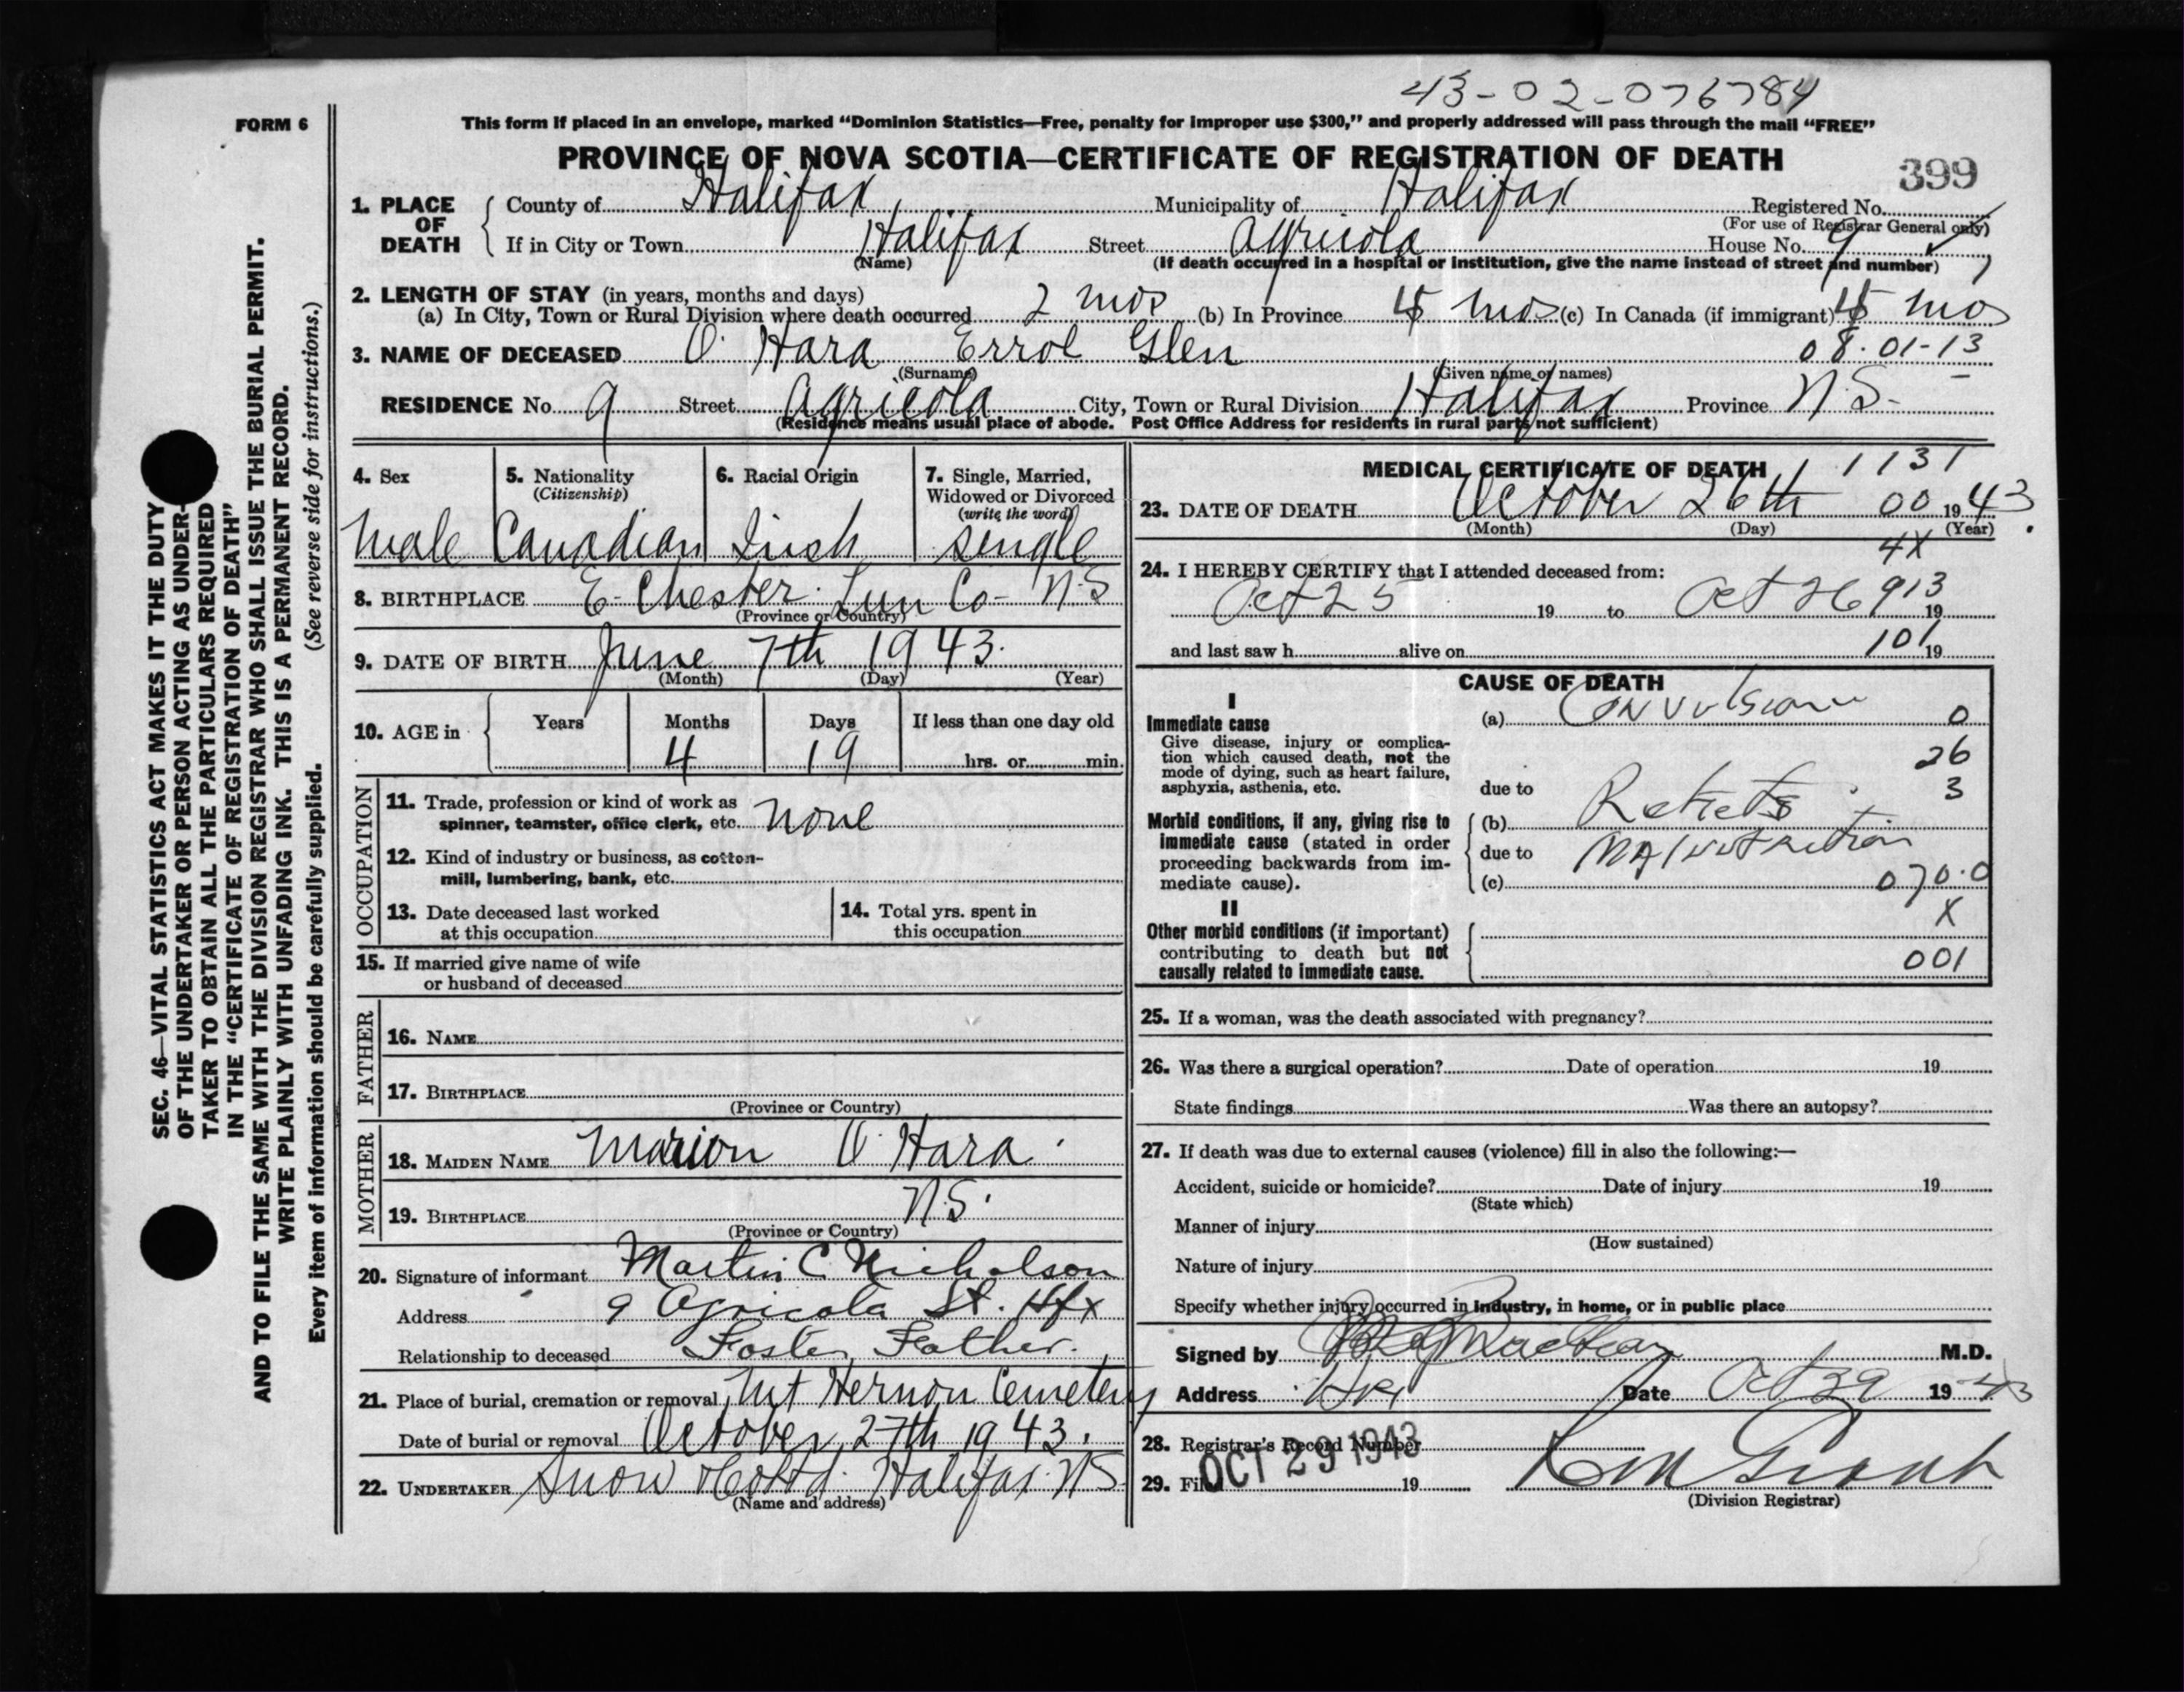 43-02-076784
FORM 6
This form if placed in an envelope, marked “Dominion Statistics—Free, penalty for improper use $300,” and properly addressed will pass through the mail “FREE”
PROVINCE OF NOVA SCOTIA—CERTIFICATE OF REGISTRATION OF DEATH
399
1. PLACE OF DEATH { County of Halifax Municipality of Halifax Registered No.
(For use of Registrar General only)
If in City or Town Halifax Street Agricola House No. 9
(Name) (If death occurred in a hospital or institution, give the name instead of street and number)
2. LENGTH OF STAY (in years, months and days)
(a) In City, Town or Rural Division where death occurred 2 mos (b) In Province 5 mos (c) In Canada (if immigrant) 5 mos
3. NAME OF DECEASED O'Hara Errol Glen 08-01-13
(Surname) (Given name or names)
RESIDENCE No. 9 Street Agricola City, Town or Rural Division Halifax Province N.S.
(Residence means usual place of abode. Post Office Address for residents in rural parts not sufficient)
4. Sex 5. Nationality (Citizenship) 6. Racial Origin 7. Single, Married, Widowed or Divorced (write the word)
Male Canadian Irish Single
8. BIRTHPLACE E. Chester Lun Co- N.S
(Province or Country)
9. DATE OF BIRTH June 7th 1943.
(Month) (Day) (Year)
10. AGE in { Years Months Days If less than one day old
4 19 hrs. or min.
OCCUPATION
11. Trade, profession or kind of work as
spinner, teamster, office clerk, etc. none
12. Kind of industry or business, as cotton-
mill, lumbering, bank, etc.
13. Date deceased last worked
at this occupation
14. Total yrs. spent in
this occupation
15. If married give name of wife
or husband of deceased
FATHER
16. NAME
17. BIRTHPLACE
(Province or Country)
MOTHER
18. MAIDEN NAME Marion O'Hara
19. BIRTHPLACE N.S.
(Province or Country)
20. Signature of informant Martin C Nicholson
Address 9 Agricola St. Hfx
Relationship to deceased Foster Father.
21. Place of burial, cremation or removal Mt Hermon Cemetery
Date of burial or removal October 27th 1943.
22. UNDERTAKER Snow & Co Ltd. Halifax N.S.
(Name and address)
MEDICAL CERTIFICATE OF DEATH 1131
23. DATE OF DEATH October 26th 00 1943.
(Month) (Day) (Year)
4X
24. I HEREBY CERTIFY that I attended deceased from:
Oct 25 19 to Oct 26 913 19
and last saw h alive on 101 19
CAUSE OF DEATH
I
Immediate cause
Give disease, injury or complica-
tion which caused death, not the
mode of dying, such as heart failure,
asphyxia, asthenia, etc.
(a) Convulsions 0
26
due to 3
Morbid conditions, if any, giving rise to
immediate cause (stated in order
proceeding backwards from im-
mediate cause).
(b) Rickets
due to Malnutrition
(c) 070.0
II X
Other morbid conditions (if important)
contributing to death but not
causally related to immediate cause.
001
25. If a woman, was the death associated with pregnancy?
26. Was there a surgical operation? Date of operation 19
State findings Was there an autopsy?
27. If death was due to external causes (violence) fill in also the following:—
Accident, suicide or homicide? Date of injury 19
(State which)
Manner of injury
(How sustained)
Nature of injury
Specify whether injury occurred in industry, in home, or in public place
Signed by M.D.
Address Hfx Date Oct 29 1943
28. Registrar's Record Number
OCT 29 1943
29. Fil 19
(Division Registrar)
SEC. 46—VITAL STATISTICS ACT MAKES IT THE DUTY
OF THE UNDERTAKER OR PERSON ACTING AS UNDER-
TAKER TO OBTAIN ALL THE PARTICULARS REQUIRED
IN THE “CERTIFICATE OF REGISTRATION OF DEATH”
AND TO FILE THE SAME WITH THE DIVISION REGISTRAR WHO SHALL ISSUE THE BURIAL PERMIT.
WRITE PLAINLY WITH UNFADING INK. THIS IS A PERMANENT RECORD.
Every item of information should be carefully supplied. (See reverse side for instructions.)